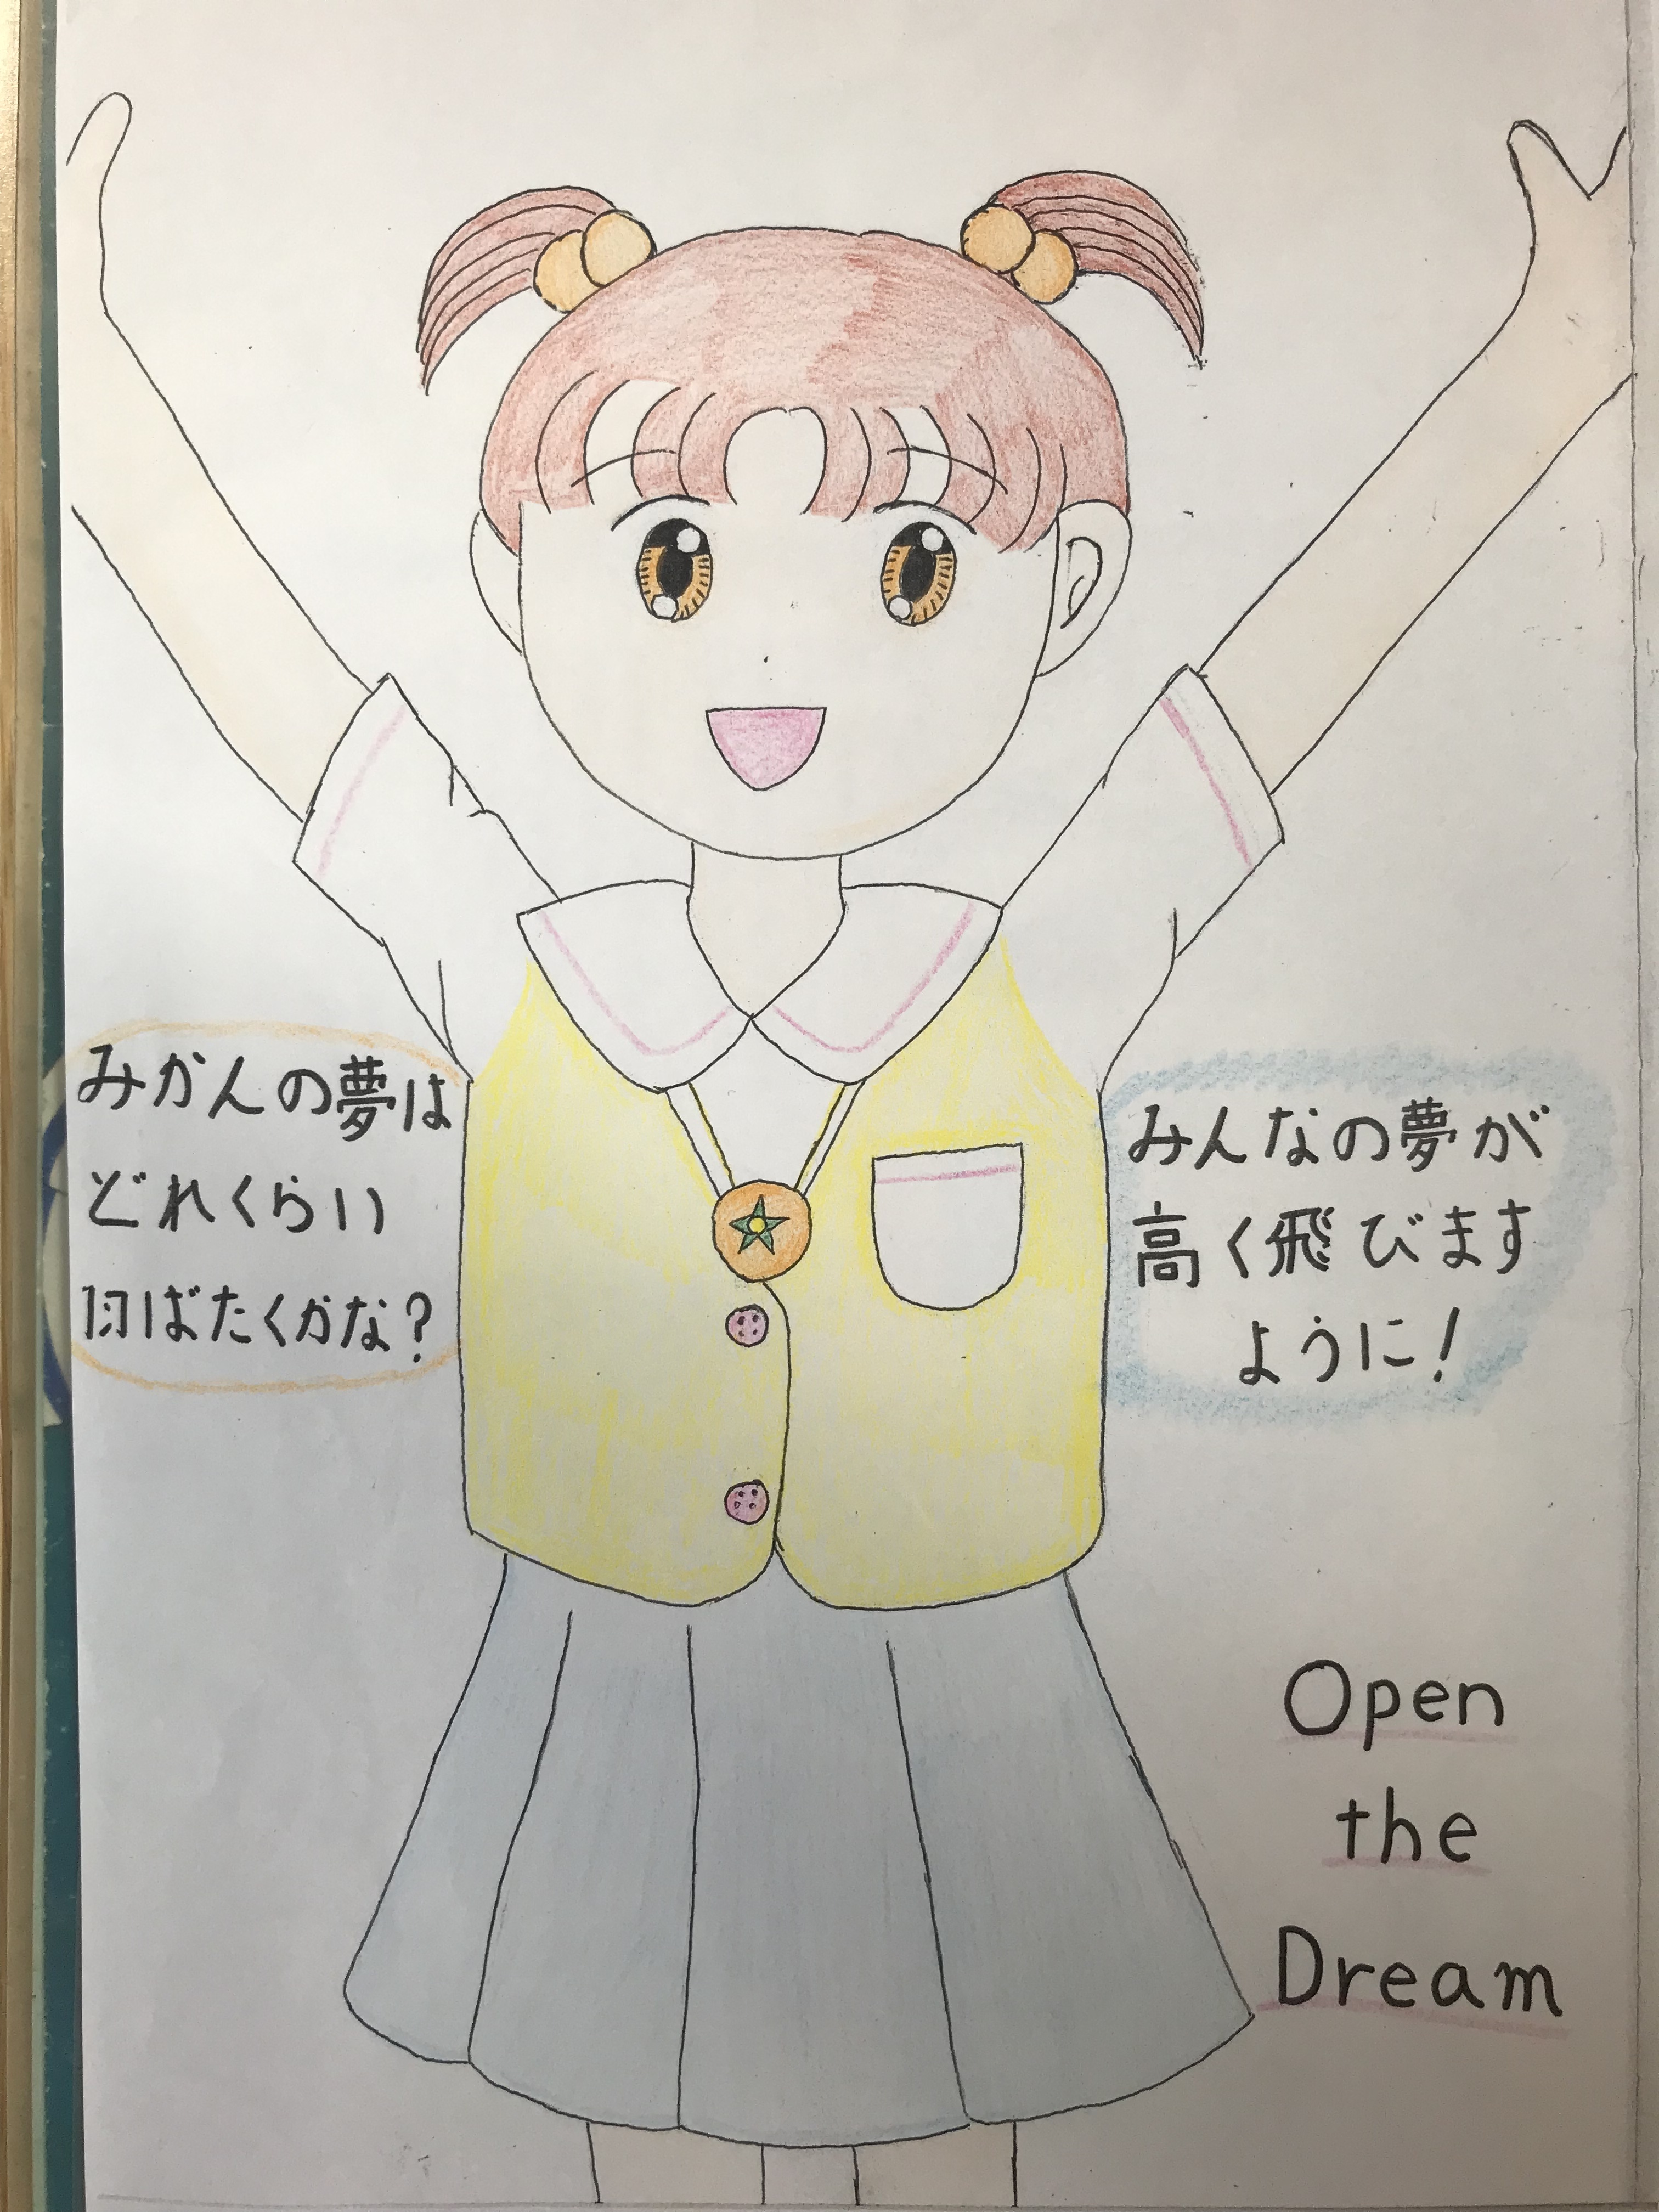 みかんの夢は
どれくらい
羽ばたくかな?
みんなの夢が
高く飛びます
ように!
Open
the
Dream